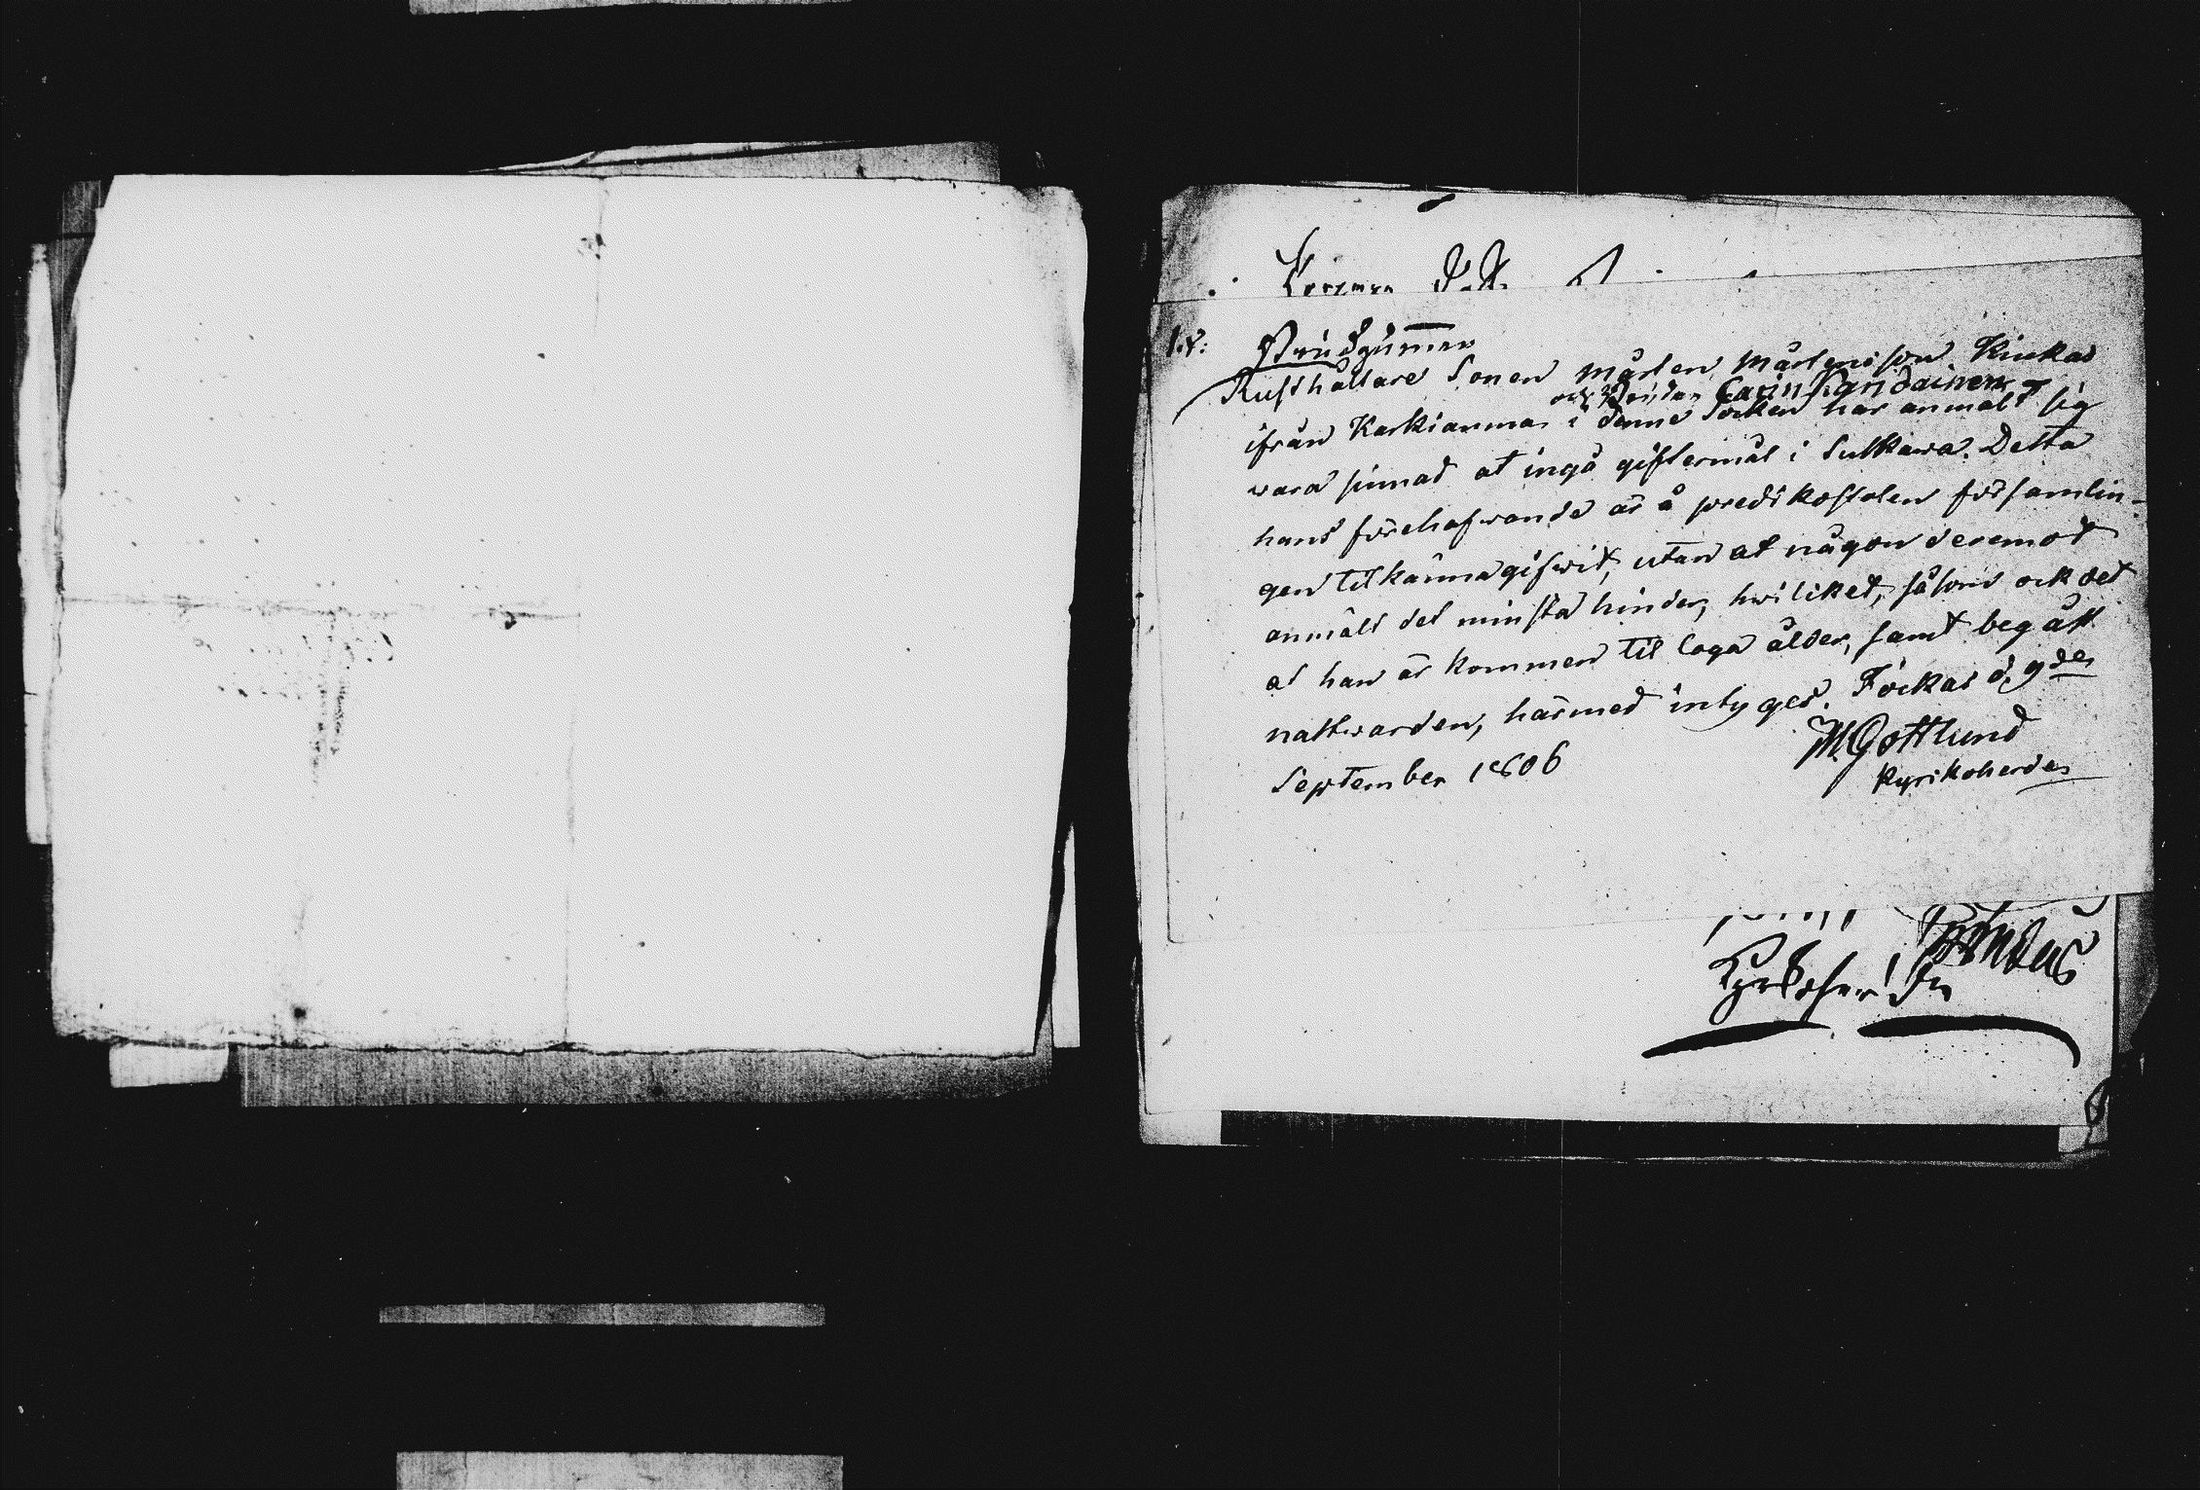 1.v:
Brudgummen
Rusthållare Sonen Mårten Mårtensson Kiukas
och Bruden Carin Pandainen
ifrån Karkiamma i denne Socken har anmält sig
vara sinnad at ingå giftermål i Sulkawa. Detta
hans förehafwande är å predikostolen församlin-
gen tilkännagifwit, utan at någon deremot
anmält det minsta hinder, hwilket, såsom ock det
at han är kommen til laga ålder, samt begått
nattwarden, härmed intyges. Jockas d. 9de
September 1806
M. Gottlund
Kyrkoherde
Kyrkoherde